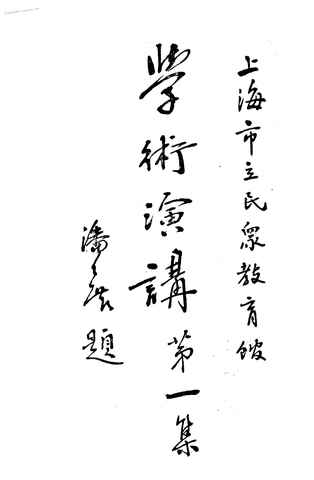 上海市立民眾教育館
學術演講第一集
潘公展題